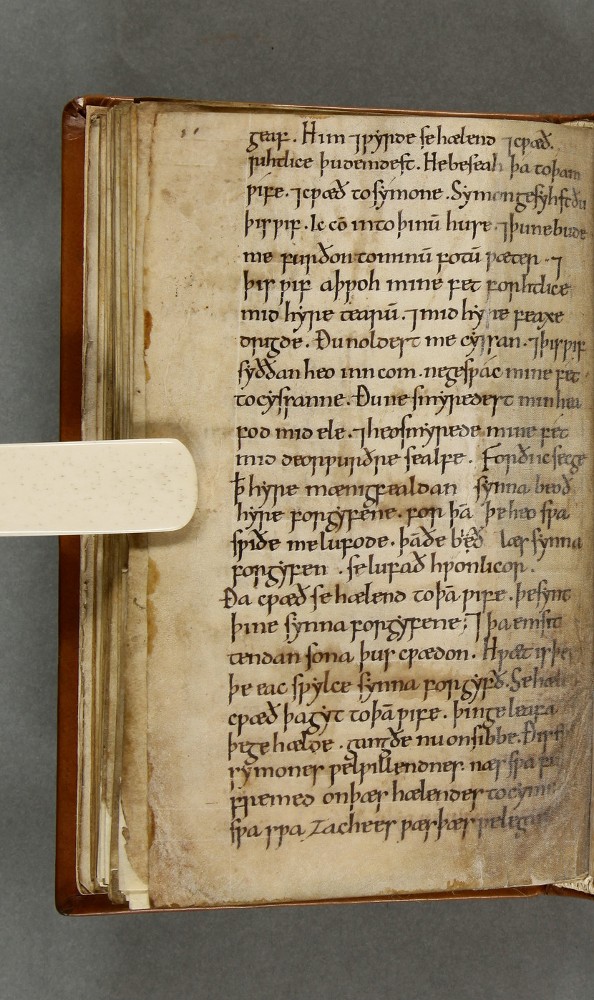 geaf. Him ⁊wyrde se hælend ⁊cƿæð.
rihtlice þu demdest. He beseah þa to þam
ƿife. ⁊cƿæð to symone. Symon gesyhst ðu
þis ƿif. Ic cō into þinū huse. ⁊þu ne bude
me furðon to minū fotū ƿæter. ⁊
þis ƿif aþƿoh mine fet forhtlice
mid hyre tearū. ⁊mid hyre feaxe
drigde. Ðu noldest me cyssan. ⁊þis ƿif
syððan heo inn com. ne gesƿac mine fet
to cyssanne. Ðu ne smyredest min hea
fod mid ele. ⁊heo smyrede mine fet
mid deorƿurðre sealfe. Forði ic secge
ꝥ hyre mænigfealdan synna beoð
hyre forgyfene. for þā þe heo sƿa
sƿiðe me lufode. þā ðe bið læs synna
forgyfen . se lufað hƿonlicor.
Ða cƿæð se hælend to þā ƿife. þe synt
þine synna forgyfene; ⁊ þa emsit
tendan sona þus cƿædon. Hƿæt is þes
þe eac sƿylce synna forgyfð. Se hæl
cƿæð þa gyt to þā ƿife. þin geleafa
þe gehælde . gang ðe nu on sibbe. Ðis
symones ƿelƿillendnes næs sƿa
fremed on þæs hælendes tocyme
sƿa sƿa Zachees ƿæs þær